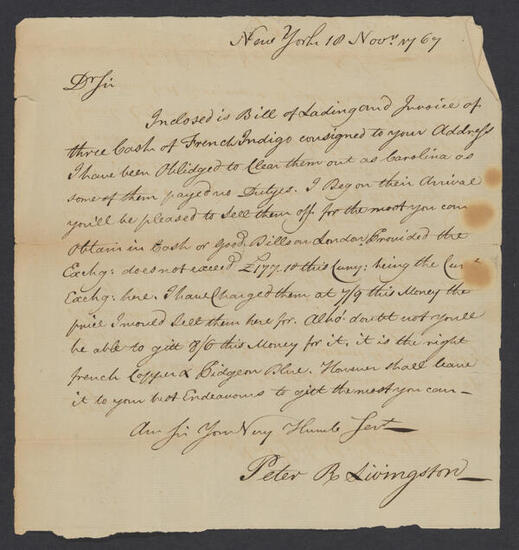 New York 18 Novr. 1767
Dr Sir
Inclosed is Bill of Lading and Invoice of
three Cash of French Indigo consigned to your Address
I have been Oblidged to Clear them out as Carolina as
some of them payed no Dutyes. I Beg on their Arrival
you'll be pleased to Sell them off for the most you can
Obtain in Cash or good Bills on London Provided the
Exchg: does not exceed £177.10 this Curry: being the Curr
Exchg: here. I have Charged them at 7/9 this Money the
price I would Sell them here for. Altho' doubt not you'll
be able to gitt 8/6 this Money for it, it is the right
french Copper & Bidgeon Blue. However shall leave
it to your best Endeavours to gitt the most you can
Am Sir Your Very Humb Sert
Peter R Livingston